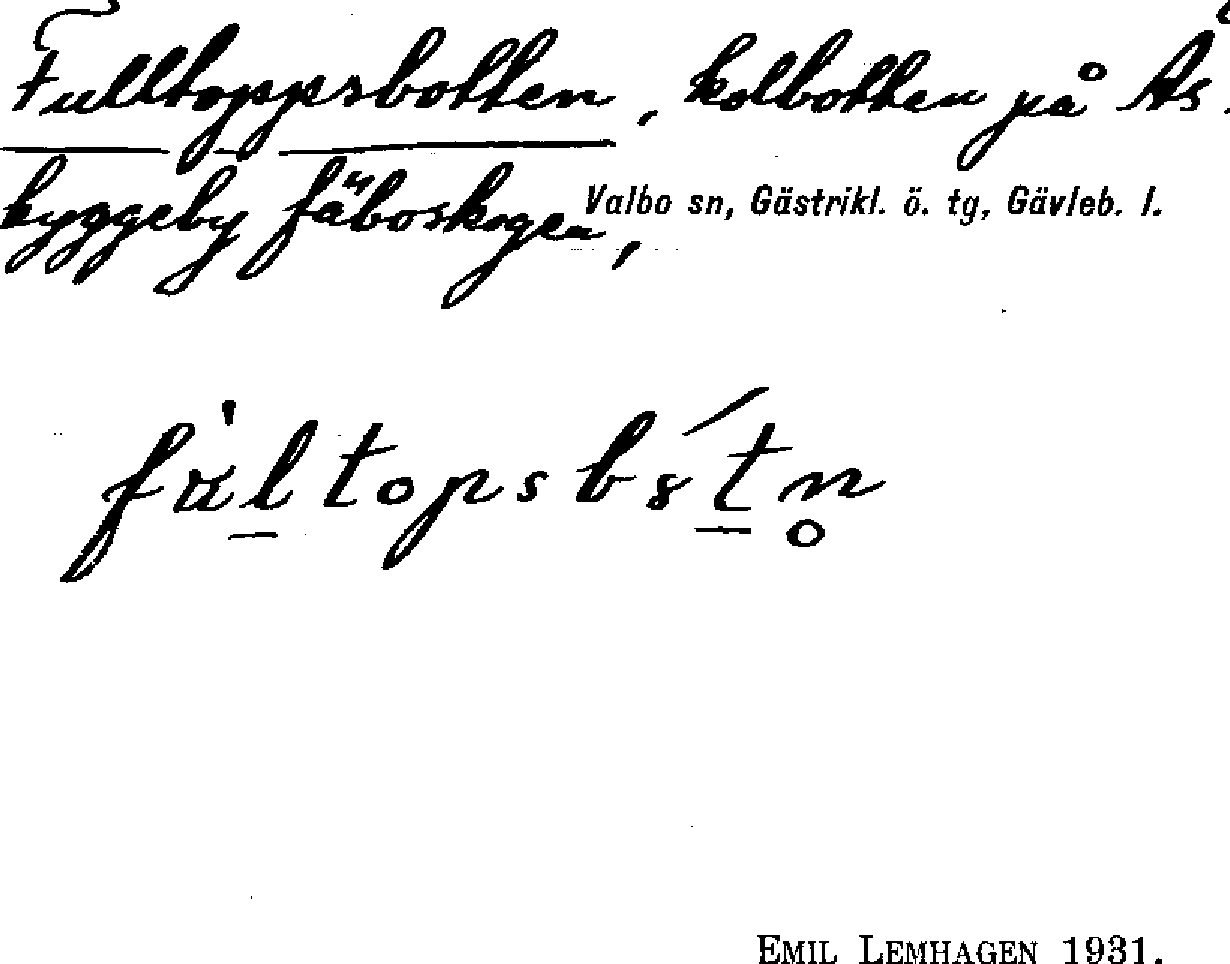 Fulltoppsbotten, kolbotten på Ås.
byggeby fäboskogen,
Valbo sn, Gästrikl. ö. tg, Gävleb. l.
EMIL LEMHAGEN 1931.